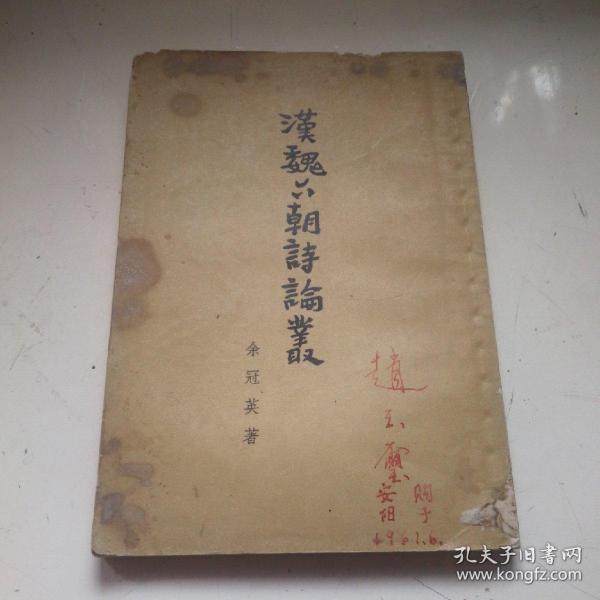 漢魏六朝詩論叢
余冠英著
趙玉
購于
安阳
1961.6.
孔夫子旧书网
www.kongfz.com